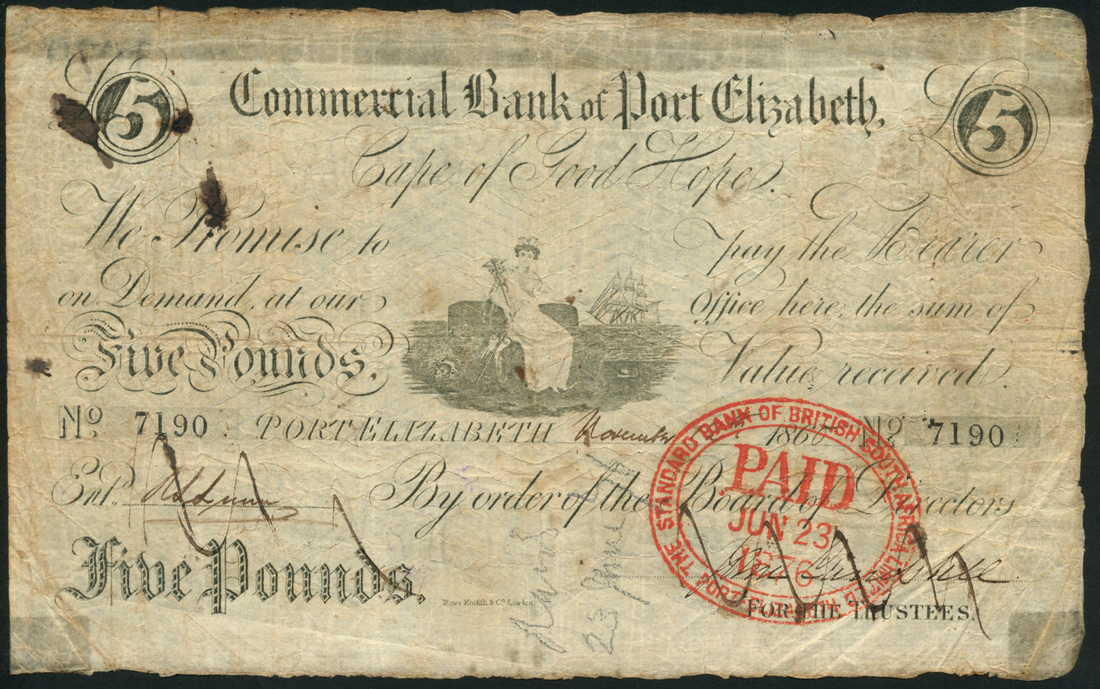 £5 Commercial Bank of Port Elizabeth, £5
Cape of Good Hope.
We Promise to pay the Bearer
on Demand, at our Office here, the sum of
Five Pounds, Value received.
No 7190 PORT ELIZABETH November 1860 No 7190
Entd By order of the Board of Directors
Five Pounds.
FOR THE TRUSTEES.
THE STANDARD BANK OF BRITISH SOUTH AFRICA LIMITED
PAID
JUN 23
1876
PORT ELIZABETH
23 June